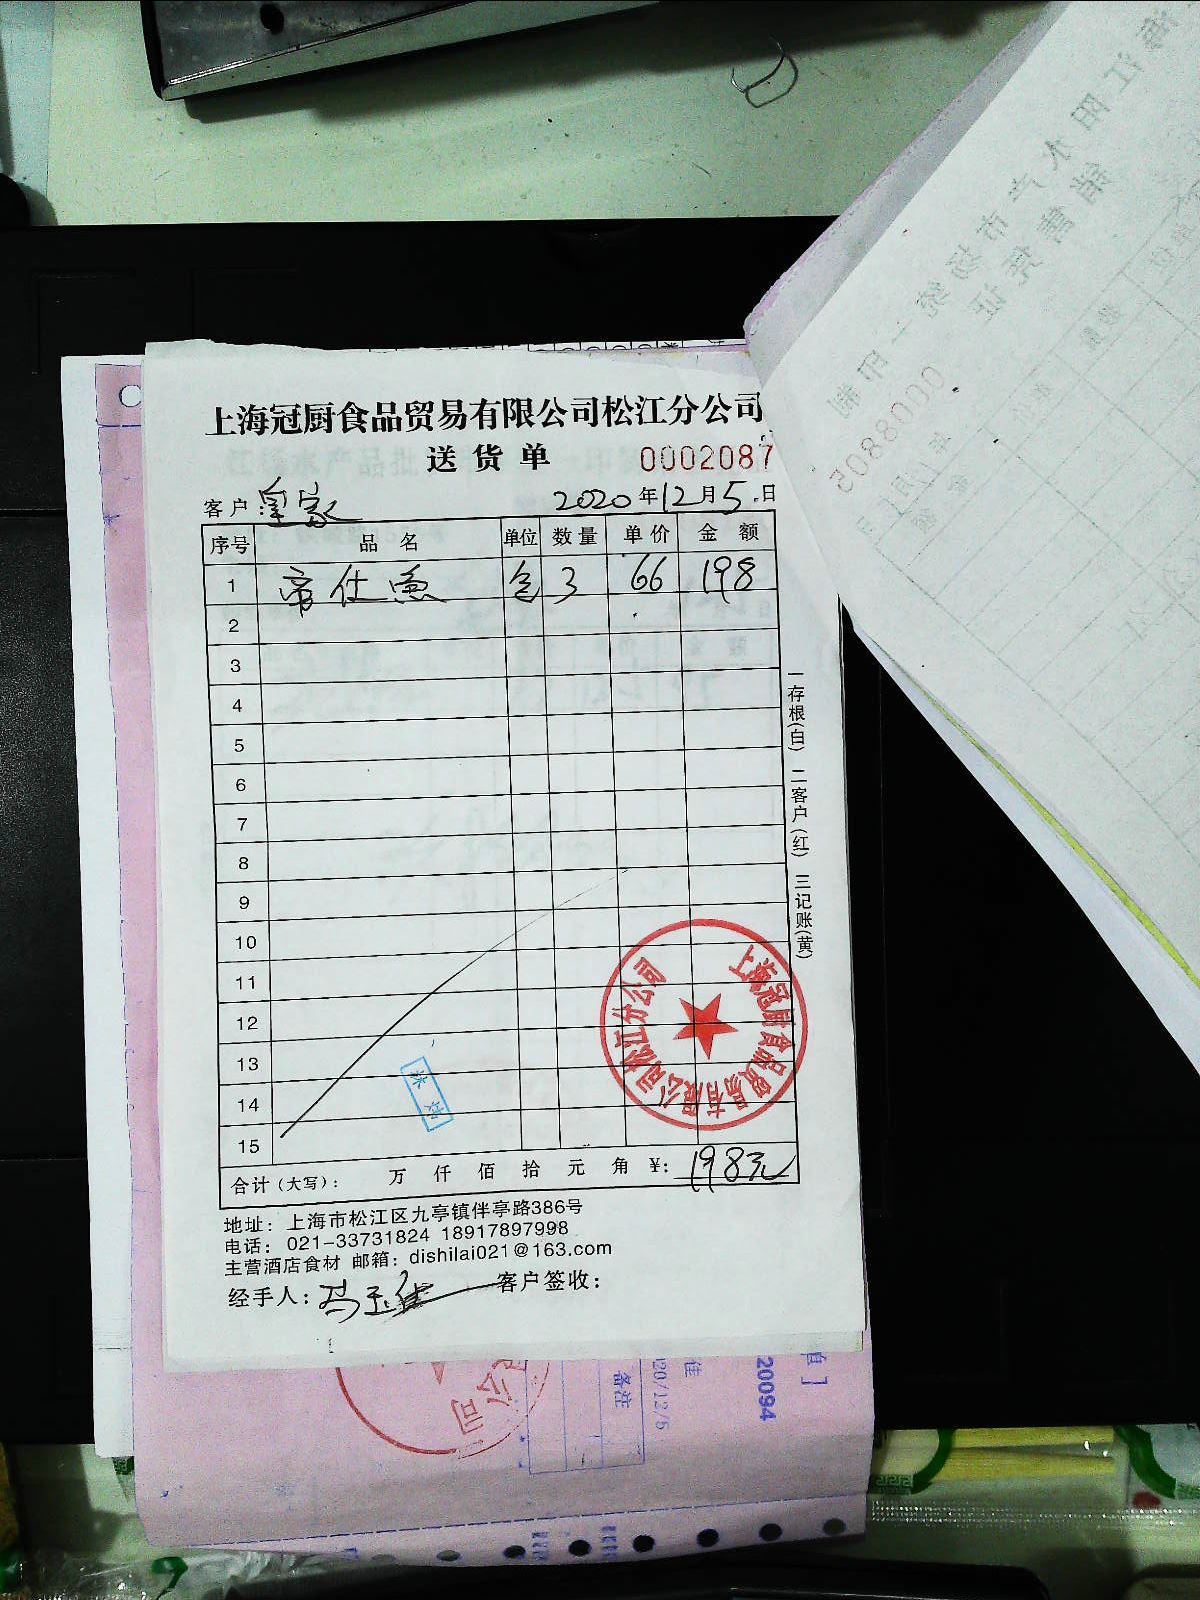 上海冠厨食品贸易有限公司松江分公司
送货单 0002087
客户: 皇家 2020年12月5日
序号 品名 单位 数量 单价 金额
1 帝仕鱼 包 3 66 198
2
3
4
5
6
7
8
9
10
11
12
13
14
15
合计(大写): 万 仟 佰 拾 元 角 ¥: 198元
地址: 上海市松江区九亭镇伴亭路386号
电话: 021-33731824 18917897998
主营酒店食材 邮箱: dishilai021@163.com
经手人: 马玉生 客户签收:
一存根(白) 二客户(红) 三记账(黄)
上海冠厨食品贸易有限公司松江分公司
海江阳水产市场统一印制
销售凭证
0008805
备注
20/12/5
20094